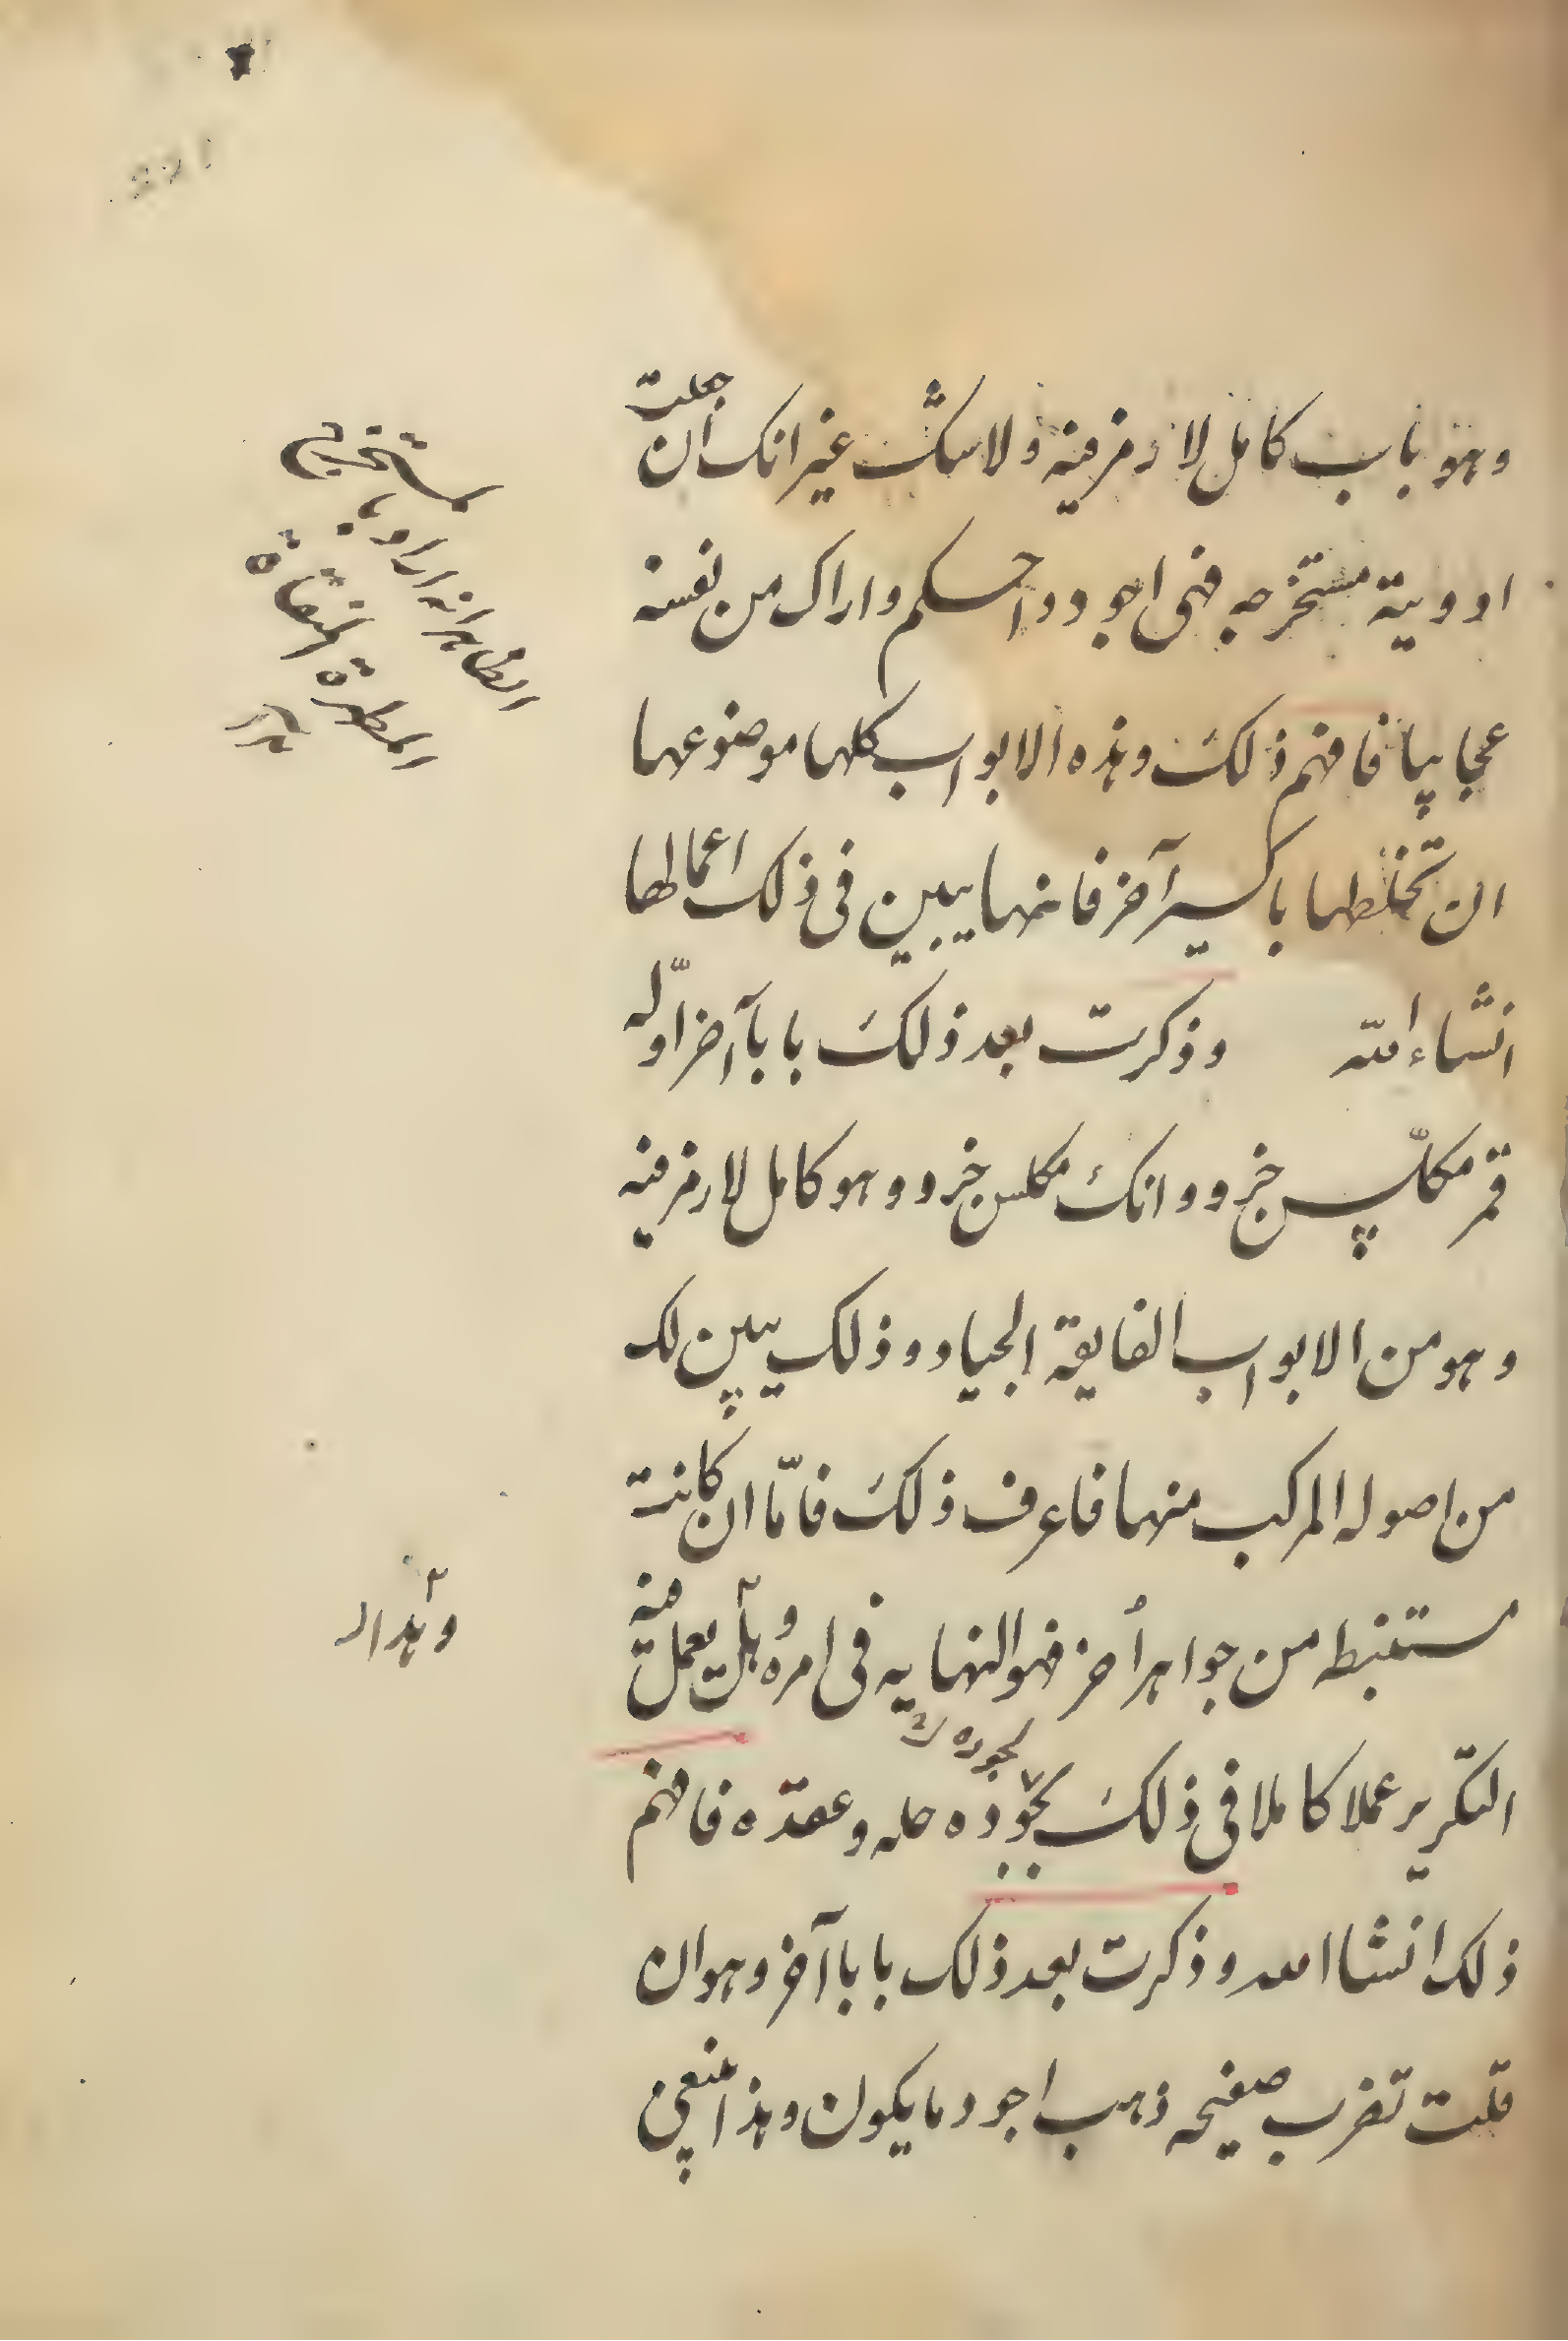 وهو باب كامل لا رمز فيه ولا شكّ غير انك ان جعلت
ادويته مستخرجه فهى اجود واحكم واراك من نفسه
عجايبا فافهم ذلكَ وهذه الابواب كلها موضوعها
ان تخلطها باكسير آخر فانها يبين فى ذلك اعمالها
انشاء الله وذكرت بعد ذلكَ باباً آخر اوّله
قمر مكلّس جزو وانك مكلس جزو وهو كامل لا رمز فيه
وهو من الابواب الفايقة الجياد وذلك يبين لك
من اصوله المركب منها فاعرف ذلكَ فامّا ان كانت
مستنبطه من جواهر أخر فهو النهايه فى امره و بل يعمل فيه
التكرير عملا كاملا فى ذلكَ بجوده حله وعقده فافهم
لجوده
ذلك انشا الله وذكرت بعد ذلك بابا آخر وهو ان
قلت تضرب صفيحه ذهب اجود ما يكون وهذا
مستخرج
الظاهر انه اراد با
لمستخرجة المنقاة
المطهرة